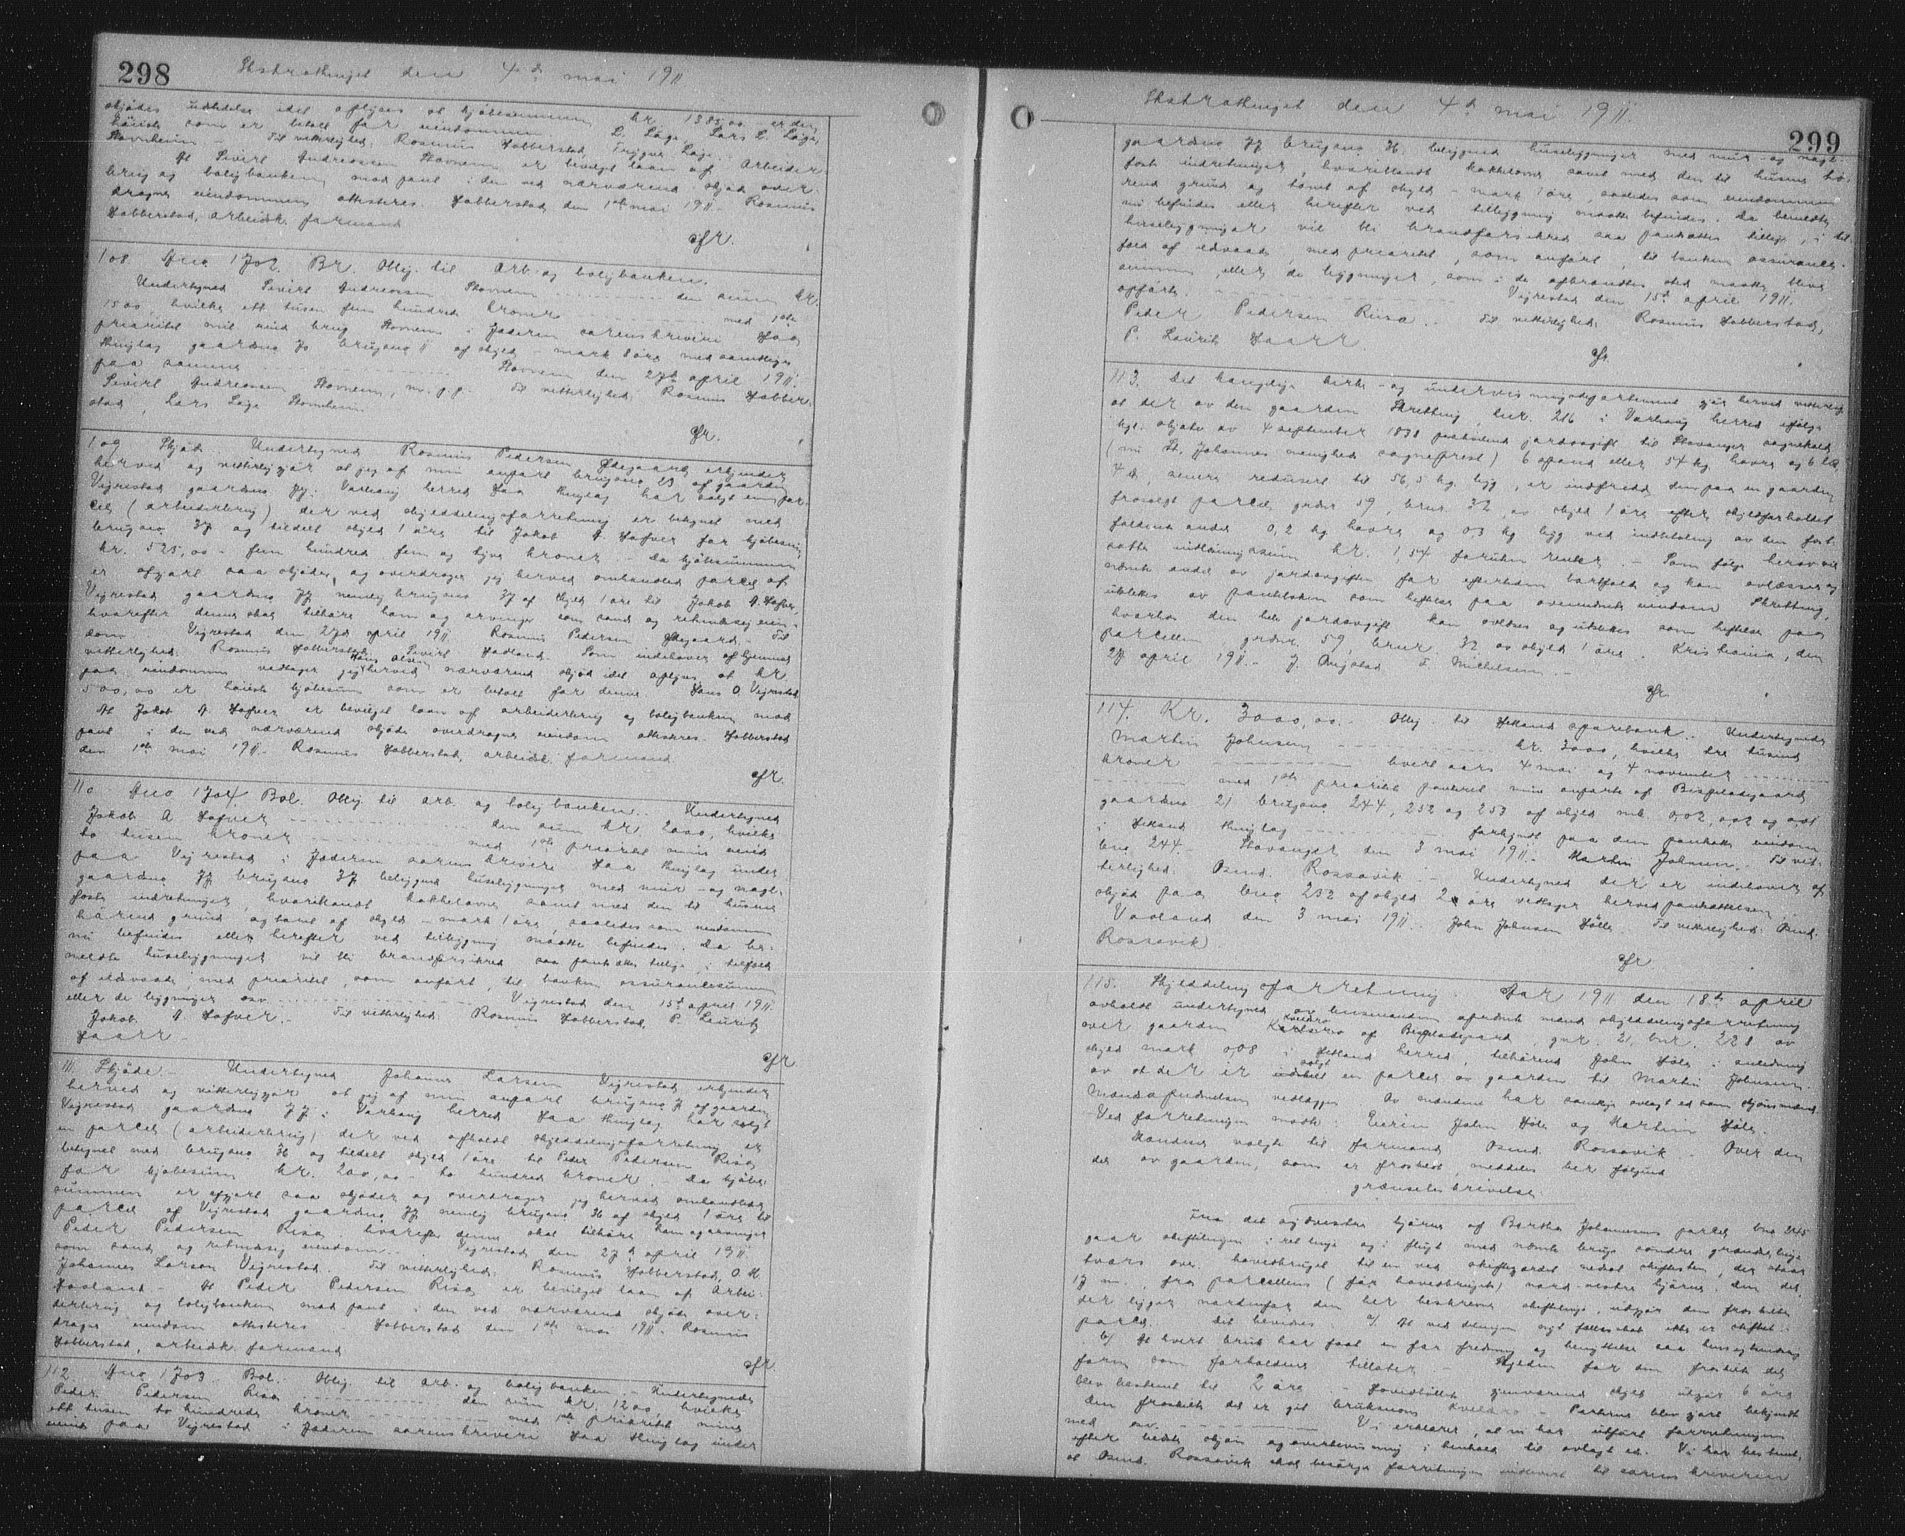 298 Ekstrathinget den 4de mai 1911
skjødes udstedelse idet oplyses at kjøbesummen kr 1385,00 er den
høieste som er betalt for eiendommen L. Lage, Lars L. Lage,
Stavnheim. Til vitterlighed: Rasmus Hobberstad, Trygve Lage.
At Sivert Andreassen Stavnem er bevilget laan af Arbeider-
brug og boligbanken mod pant i den ved nærværende skjøde over-
dragne eiendommen attesteres. Hobberstad den 1ste mai 1911. Rasmus
Hobberstad, arbeidsk. formand
108 Duo 1702. Br. Oblig. til Arb. og boligbanken.
Undertegned Sivert Andreassen Stavnem den sum kr.
1500, hvilke ett tusen fem hundred kroner med 1ste
prioritet mit eiend brug Stavnem i Jæderen sorenskriveri Haa
thinglag gaardsno brugsno 11 af skyld – mark 8 øre med samtliger
paa samme Stavnem den 27de april 1911.
Sivert Andreassen Stavnem, m.p.p. Til vitterlighed: Rasmus Hobber-
stad, Lars Lage Stavnheim.
109 Skjøde. Undertegned Rasmus Pedersen Ødegaard erkjender
herved og vitterliggjør at jeg af min anpart brugsno af gaarden
Vigrestad gaardsno 77 i Varhaug herred Haa thinglag har solgt en par-
cel (arbeiderbrug) der ved skylddelingsforretning er betegnet med
brugsno 37 og tildelt skyld 1 øre til Jakob A. Hafver for kjøbesum
kr. 525,00 – fem hundred fem og tyve kroner – Da kjøbesummen
er afgjort saa skjøder og overdrager jeg herved omhandlede parcel af
Vigrestad gaardsno 77 nemlig brugsno 37 af skyld 1 øre til Jakob A. Hafver,
hvorefter denne skal tilhøre ham og arvinger som sand og retmæssig eien-
dom. Vigrestad den 27de april 1911 Rasmus Pedersen Ødegaard. Til
vitterlighed: Rasmus Hobberstad, Sivert Hadland. Som indehaver af hjemmel
paa eiendommen vedtager jeg Hans Olsen herved nærværende skjøde idet oplyses at kr.
500,00 er høieste kjøbesum som er betalt for denne. Hans O. Vigrestad
At Jakob A. Hafver er bevilget laan af arbeiderbrug og boligbanken mod
pant i den ved nærværende skjøde overdragne eiendom attesteres. Hobberstad
den 1ste mai 1911. Rasmus Hobberstad, arbeidsk. formand
110 Duo 1704 Bol. Oblig. til arb. og boligbanken. Undertegned
Jakob A Hafver den sum kr. 2000, hvilke
to tusen kroner med 1ste prioritet min eiend
paa Vigrestad i Jæderen sorenskriveri Haa thinglag under
gaardsno 77 brugsno 37 betegned husebygninger med mur- og nagl-
faste indretninger, hvoriblandt kakkelovne samt med den til husene
hørende grund og tomt af skyld – mark 1 øre, saaledes som eiendommen
nu befindes eller herefter ved tilbygning maatte befindes. Da be-
meldte husebygninger vil bli brandforsikred saa pantsættes tillige, i tilfælde
af ildsvaade, med prioritet, som anført, til banken assurancesummen
eller de bygninger osv. Vigrestad den 15d april 1911
Jakob A Hafver. Til vitterlighed Rasmus Hobberstad, P. Lauritz
Haarr.
111. Skjøde. Undertegned Johannes Larsen Vigrestad erkjender
herved og vitterliggjør at jeg af min anpart brugsno 7 af gaarden
Vigrestad gaardsno 77 i Varhaug herred Haa thinglag har solgt
en parcel (arbeiderbrug) der ved afholdt skylddelingsforretning er
betegnet med brugsno 36 og tildelt skyld 1 øre til Peder Pedersen Risa
for kjøbesum kr. 200,00 – to hundred kroner. – Da kjøbe-
summen er afgjort saa skjøder og overdrager jeg herved omhandlede
parcel af Vigrestad gaardsno 77 nemlig brugsno 36 af skyld 1 øre til
Peder Pedersen Risa hvorefter denne skal tilhøre ham og arvinger
som sand og retmæssig eiendom. Vigrestad den 27de april 1911.
Johannes Larsen Vigrestad. Til vitterlighed: Rasmus Hobberstad, O. H.
Hadland – At Peder Pedersen Risa er bevilget laan af Arbei-
derbrug og boligbanken mod pant i den ved nærværende skjøde over-
dragne eiendom attesteres. Hobberstad den 1ste mai 1911. Rasmus
Hobberstad, arbeidsk. formand
112. Duo 1703. Bol. Oblig. til arb. og boligbanken. – Undertegnede
Peder Pedersen Risa den sum kr. 1200, hvilke
ett tusen to hundrede kroner med 1ste prioritet mine
eiend paa Vigrestad i Jæderen sorenskriveri Haa thinglag under
Ekstrathinget den 4de mai 1911. 299
gaardsno 77 brugsno 36 betegned husebygninger med mur- og nagl-
faste indretninger, hvoriblandt kakkelovne samt med den til husene hø-
rende grund og tomt af skyld – mark 1 øre, saaledes som eiendommen
nu befindes eller herefter ved tilbygning maatte befindes. Da bemeldte
husebygninger vil bli brandforsikred saa pantsættes tillige, i til-
fælde af ildsvaade, med prioritet, som anført, til banken assurance-
summen eller de bygninger, som i de afbrændtes sted maatte blive
opført. Vigrestad den 15d april 1911.
Peder Pedersen Risa. Til vitterlighed: Rasmus Hobberstad,
P. Lauritz Haarr.
113. Det kongelige kirke- og undervisningsdepartement gjør herved vitterlig
at der av den gaarden Skretting, lnr. 216 i Varhaug herred ifølge
kgl. skjøte av 4 september 1838 paahvilende jordavgift til Stavanger sognekald
(nu St. Johannes menigheds sogneprest) 6 spand eller 54 kg havre og 6
4, senere redusert til 56,5 kg. byg, er indfriedd den paa en gaarden
fraskilt parcel, grdnr 59, brnr. 32, av skyld 1 øre efter skyldforholdet
faldende andel 0,2 kg havre og 0,3 kg byg ved indbetaling av den fast-
satte indløsningssum kr. 1,54 foruten renter. – Som følge herav vil
nævnte andel av jordavgiften for eftertiden bortfalde og kan avlæses og
utslettes av pantboken som heftelse paa ovennævnte eiendom Skretting,
hvorhos den hele jordavgift kan avløses og utslettes som heftelse paa
parcellen grdnr. 59, brnr. 32 av skyld 1 øre. Kristiania, den
27 april 1911. J. Qvigstad F. Michelsen.
114. Kr. 3000,00. Oblig. til Hetland sparebank. Undertegnede
Martin Johnsen kr. 3000, hvilke tre tusind
kroner hvert aars 4 mai og 4 november
med 1ste prioritet pantered min anparts af Bispeladegaard
gaardsno 21 brugsno 244, 252 og 253 af skyld mk 0,02, 0,02 og 0,01
i Hetland thinglag forkyndt paa den pantsatte eiendom
bno 244. Stavanger den 3 mai 1911. Martin Johnsen. Til vit-
terlighed: Osmd. Rossavik – Undertegned der er indehaver af
skjøde paa bno 252 af skyld 2 øre vedtager herved pantsættelsen.
Vaaland den 3 mai 1911. John Johnsen Hølle. Til vitterlighed: Osmd.
Rossavik.
115. Skylddelingsforretning. Aar 1911 den 18de april
avholdt undertegned av lensmanden opnævnte mænd skylddelingsforretning
over gaarden Kvelsro af Bispeladegaard, gnr. 21, bnr. 228 av
skyld mark 0,08 i Hetland herred, tilhørende John Høle i anledning
av at der er solgt en parcel av gaarden til Martin Johnsen.
Mandsopnævnelsen vedlægges. Av mændene har samtlige avlagt ed som skjønsmænd.
Ved forretningen møtte: Eieren John Høle og Martin Høle.
Mændene valgte til formand Osmd. Rossavik. Over den
del av gaarden, som er fraskilt, meddeles her følgende
grænsebeskrivelse.
Fra det sydvestre hjørne af Bertha Johannesens parcel bno 245
gaar skiftelinjen i ret linje og i flugt med nævnte brugs søndre grændselinje
tvars over havebruget til en ved skiftegjerdet nedsat skiftesten, der staar
17 m. fra parcellens (før havebrugets) nord-vestre hjørne. Den del,
der ligger nordenfor den her beskrevne skiftelinje, udgjør den fraskilte
parcel. Det bevidnes: a/ At ved delingen nyt fællesskab ikke er stiftet.
b/ At hvert bruk har faat en for fredning og benyttelse saa hensigtsmæssig
form som forholdene tillater. Skylden for den fraskilte del
blev bestemt til 2 øre – Hovedbølets gjenværende skyld utgjør 6 øre
Den fraskilte del er git bruksnavn Kveldro – Parterne blev gjort bekjendt
med osv. Vi erklærer, at vi har utført forretningen
efter bedste skjøn og overbevisning i henhold til avlagt ed. Vi har bestemt,
at Osmd. Rossavik skal besørge forretningen indlevert til sorenskriveren